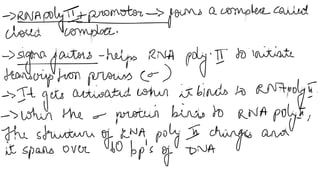 → RNA poly II + promotor → forms a complex called
closed complex.
→ sigma factors - helps RNA poly. II to initiate
transcription process (σ)
→ It gets activated when it binds to RNA poly II
→ When the σ protein binds to RNA poly II,
the structure of RNA poly II changes and
it spans over 60 bp's of DNA